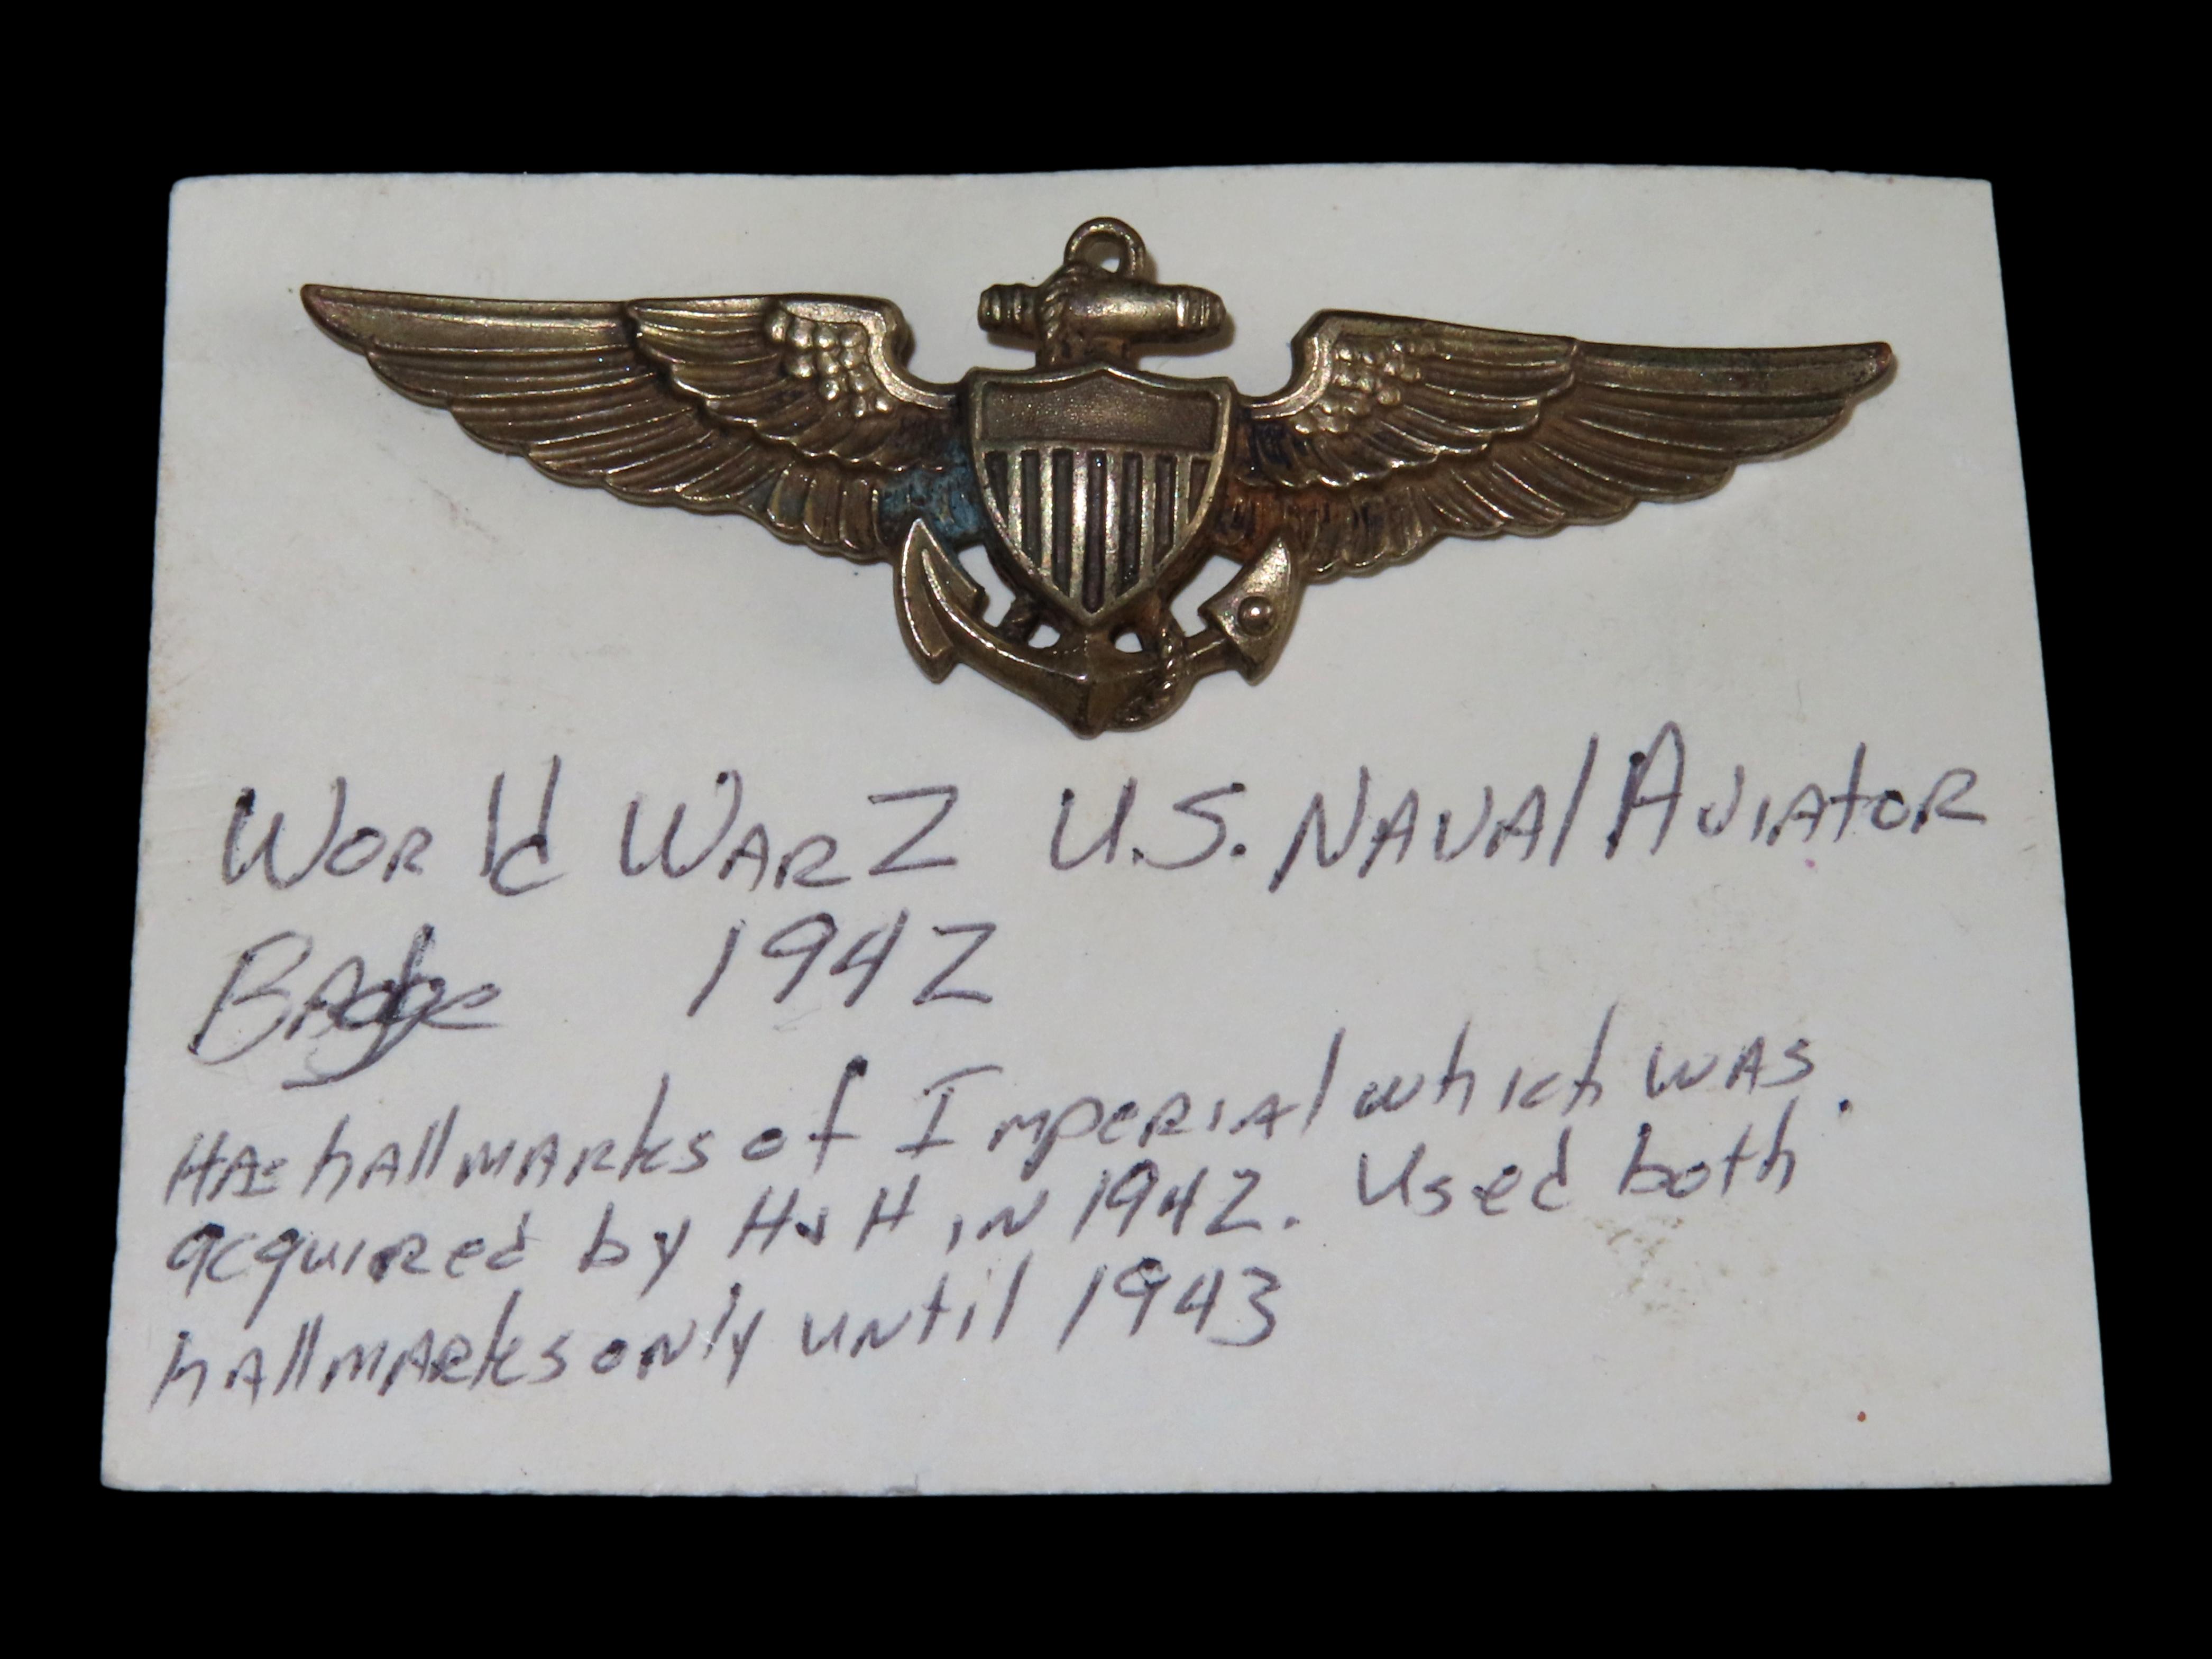 World War 2 U.S. Naval Aviator
Badge 1942
Has hallmarks of Imperial which was.
acquired by H & H in 1942. Used both
hallmarks only until 1943